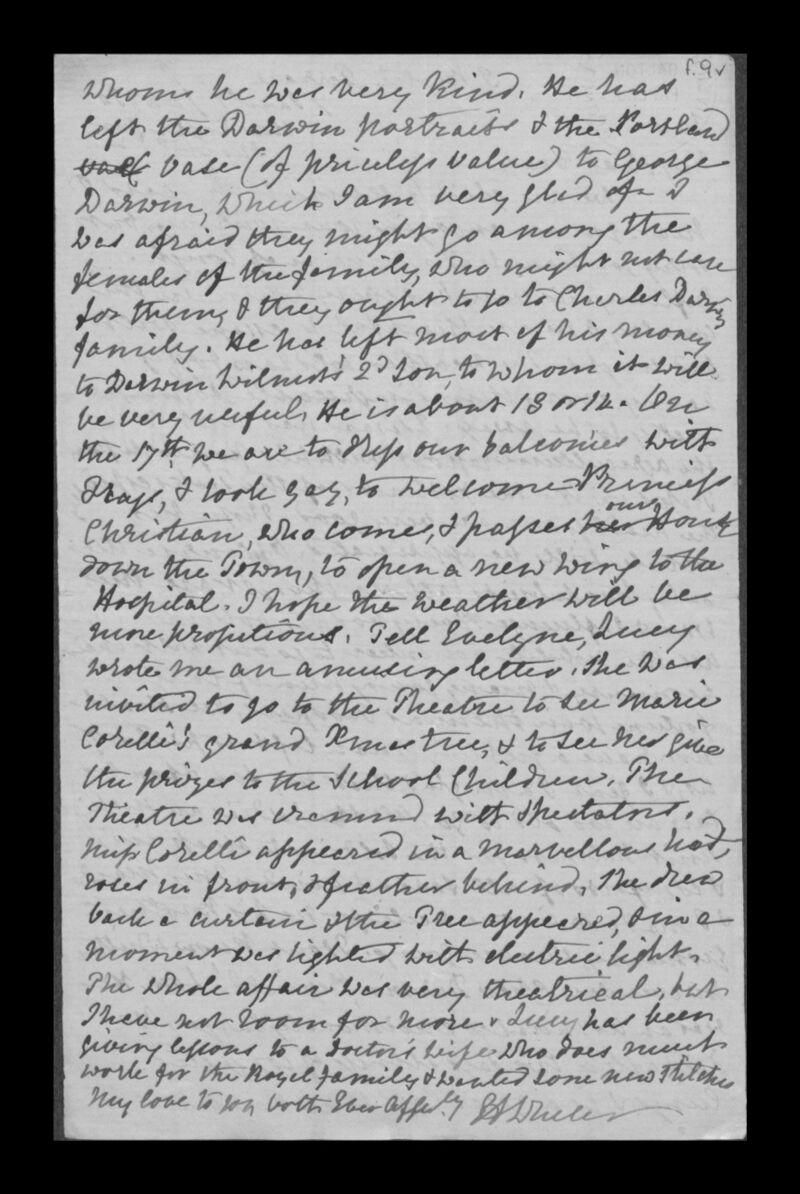 f.9v
whom he was very kind. He has
left the Darwin portraits & the Portland
vase (of priceless value) to George
Darwin, which I am very glad of. I
was afraid they might go among the
females of the family, who might not care
for them, & they ought to go to Charles Darwin's
family. He has left most of his money
to Darwin Wilmot's 2d son, to whom it will
be very useful. He is about 13 or 14. On
the 17th we are to dress our balconies with
flags, & look gay, to welcome Princess
Christian, who comes, & passes our House
down the Town, to open a new wing to the
Hospital. I hope the weather will be
more propitious. Tell Evelyne, Lucy
wrote me an amusing letter. She was
invited to go to the Theatre to see Marie
Corelli's grand Xmas tree, & to see her give
the prizes to the School Children. The
Theatre was crammed with spectators.
Miss Corelli appeared in a marvellous hat,
roses in front, & feather behind, She drew
back a curtain & the Tree appeared, & in a
moment was lighted with electric light.
The whole affair was very theatrical, but
I have not room for more. Lucy has been
giving lessons to a doctor's wife who does much
work for the Royal family & wanted some new stitches
My love to you both Ever Affly